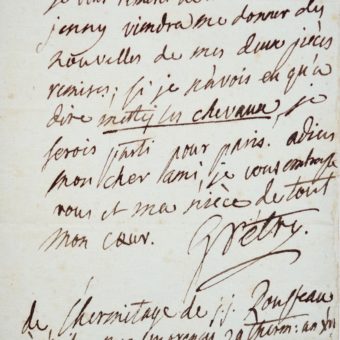 je vous remerc
jenny viendra me donner des
nouvelles de mes deux pièces
remises; si je n'avois eu qu'a
dire mettez les chevaux, je
serois parti pour paris. adieu
mon cher ami, je vous embrasse
vous et ma nièce de tout
mon cœur. Grétry.
de l'hermitage de j.j. Rousseau
therm: an